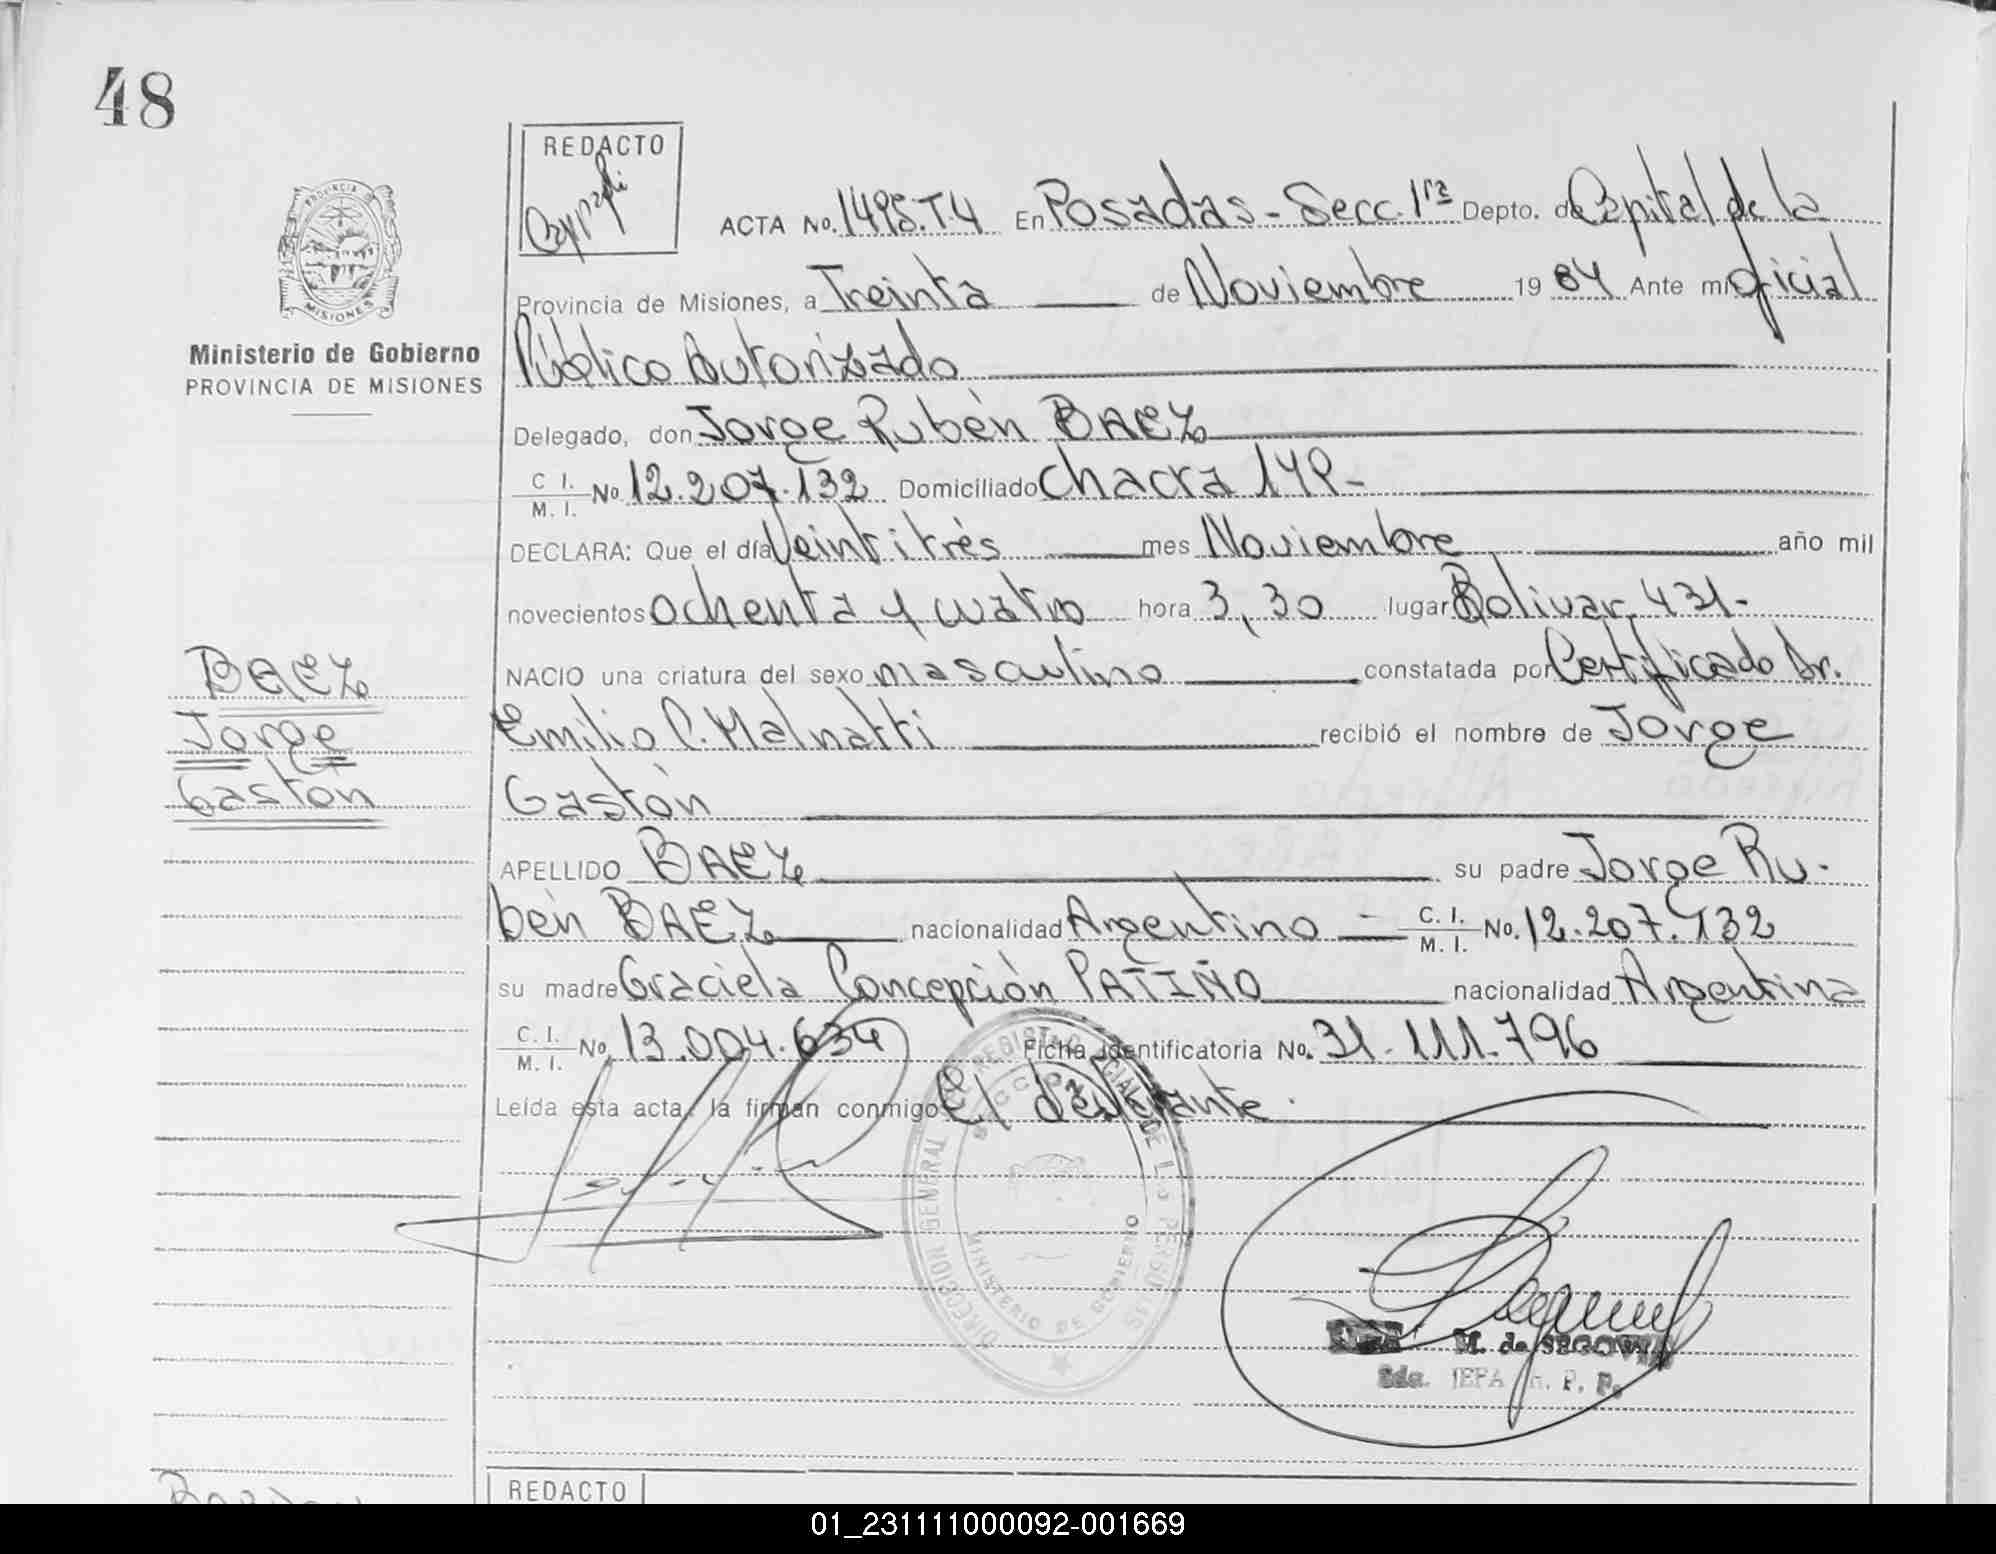 48
REDACTO
PROVINCIA
MISIONES
ACTA No. 1495.T.4 En Posadas - Secc. 1ra Depto. de Capital de la
Provincia de Misiones, a Treinta de Noviembre 1984 Ante mi Oficial
Ministerio de Gobierno
PROVINCIA DE MISIONES
Público Autorizado
Delegado, don Jorge Rubén BAEZ
C. I. M. I. No. 12.207.132 Domiciliado Chacra 149-
DECLARA: Que el día Veintitrés mes Noviembre año mil
novecientos ochenta y cuatro hora 3,30 lugar Bolivar 431-
BAEZ
Jorge
Gastón
NACIO una criatura del sexo masculino constatada por Certificado Dr.
Emilio C. Malnatti recibió el nombre de Jorge
Gastón
APELLIDO BAEZ su padre Jorge Ru-
bén BAEZ nacionalidad Argentino C. I. M. I. No. 12.207.132
su madre Graciela Concepción PATIÑO nacionalidad Argentina
C. I. M. I. No. 13.004.634 Ficha identificatoria No. 31.111.796
Leída esta acta, la firman conmigo El declarante.
DIRECCION GENERAL REGISTRO DE LAS PERSONAS
MINISTERIO DE GOBIERNO
M. de SEGOVIA
2da. JEFA R. P. P.
REDACTO
01_231111000092-001669